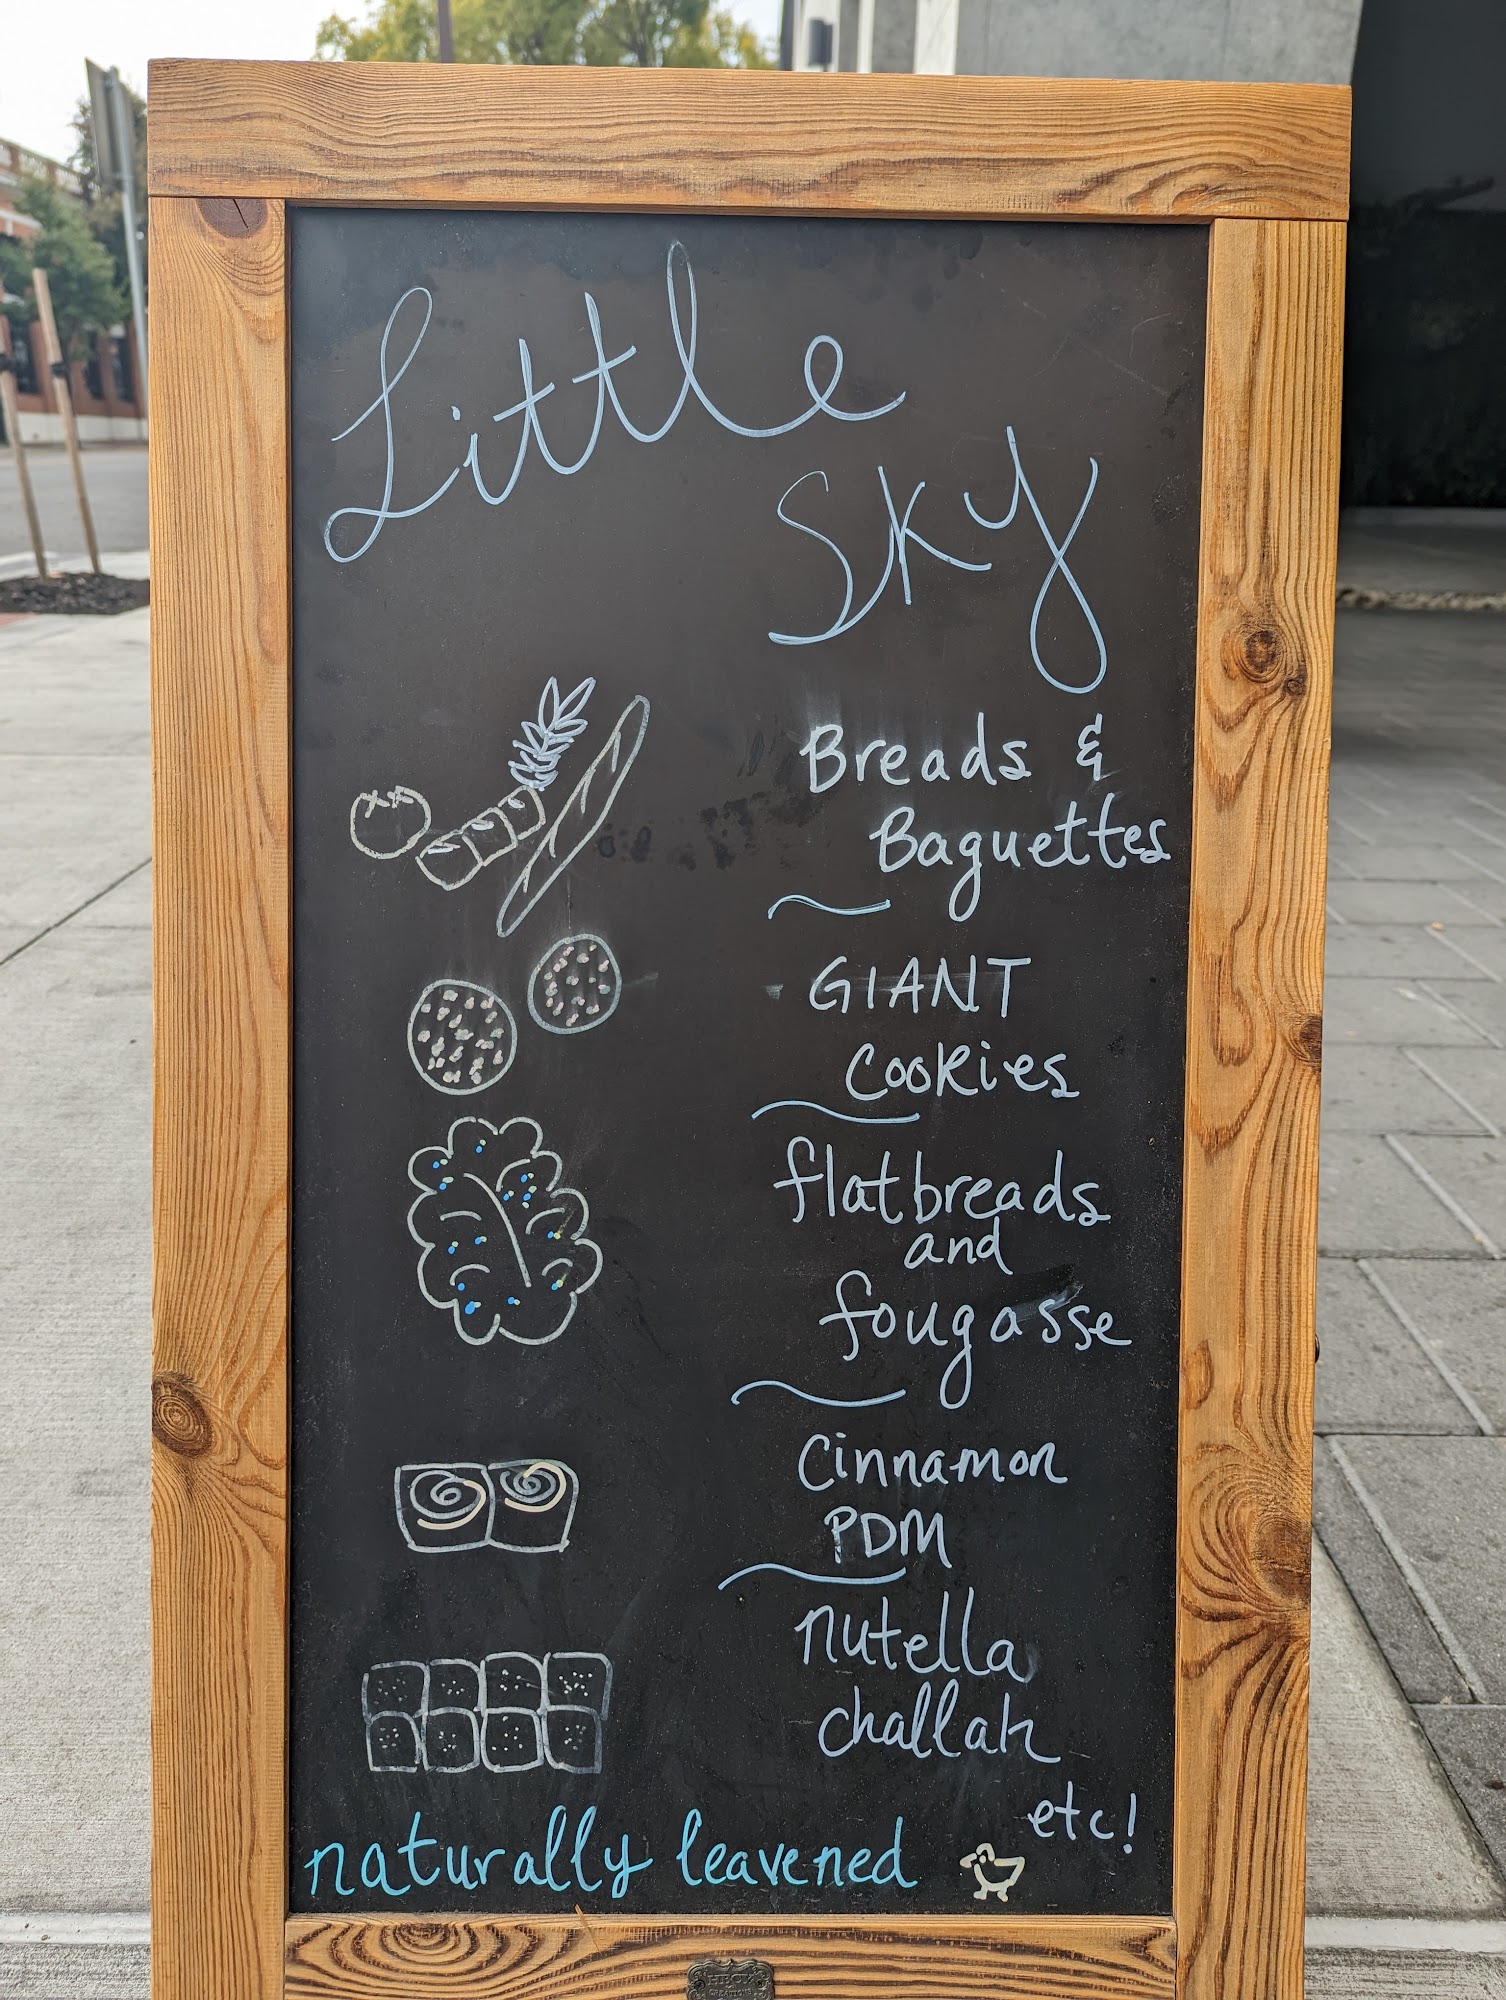 Little
Sky
Breads &
Baguettes
GIANT
Cookies
flatbreads
and
fougasse
Cinnamon
PDM
nutella
challah
etc!
naturally leavened
CREATIONS